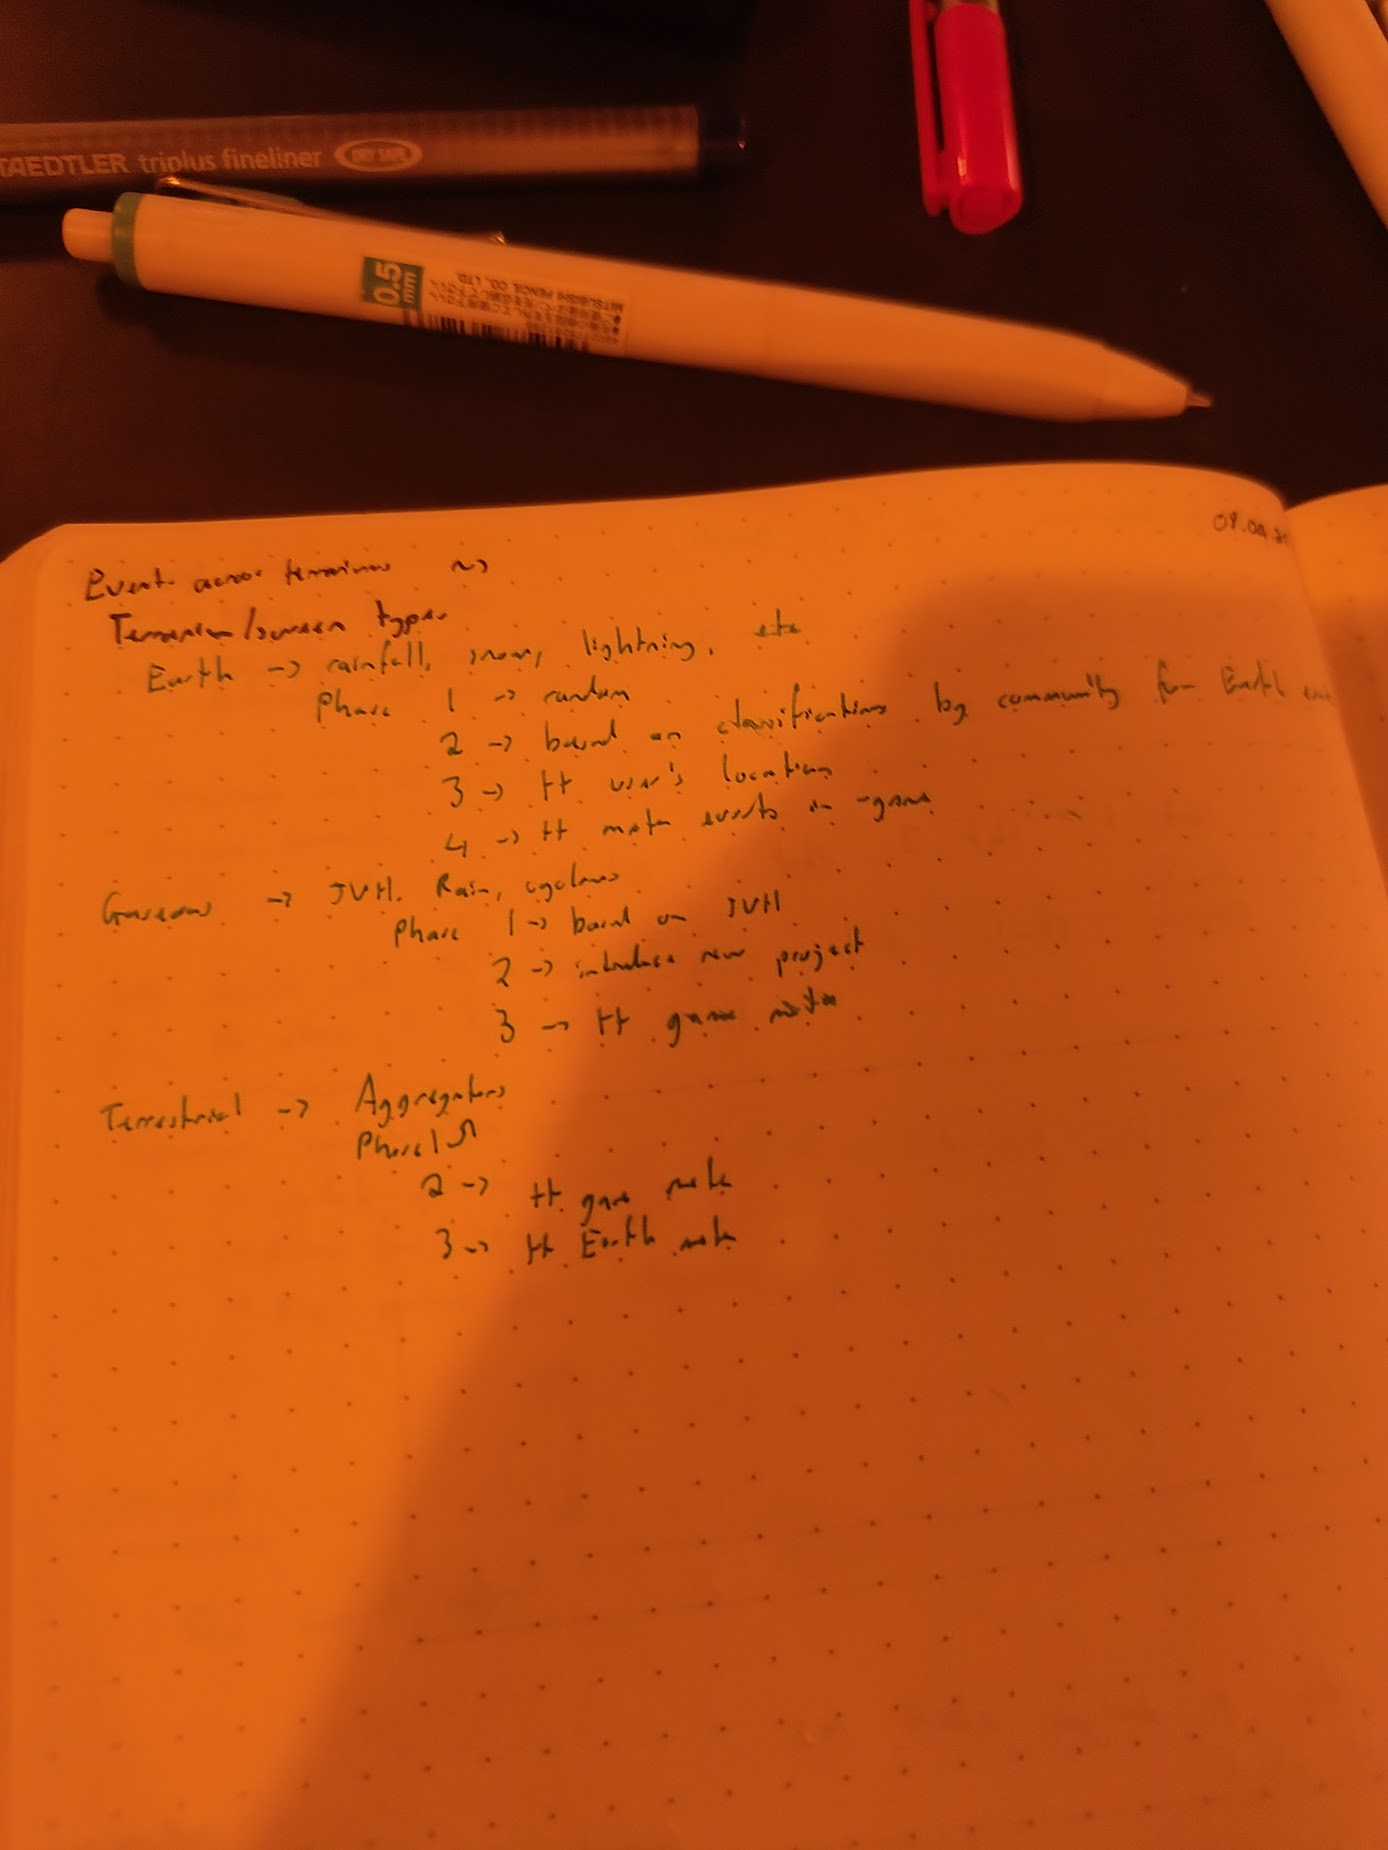 STAEDTLER triplus fineliner DRY SAFE
0.5 mm
MITSUBISHI PENCIL CO., LTD.
Events across terrariums ~>
Terrarium/screen types
Earth -> rainfall, snow, lightning, etc
Phase 1 -> random
2 -> based on classifications by community for Earth
3 -> ++ user's location
4 -> ++ meta events in-game
Gaseous -> JVH. Rain, cyclones
Phase 1 -> based on JVH
2 -> introduce new project
3 -> ++ game meta
Terrestrial -> Aggregators
Phase 1
2 -> ++ game meta
3 -> ++ Earth meta